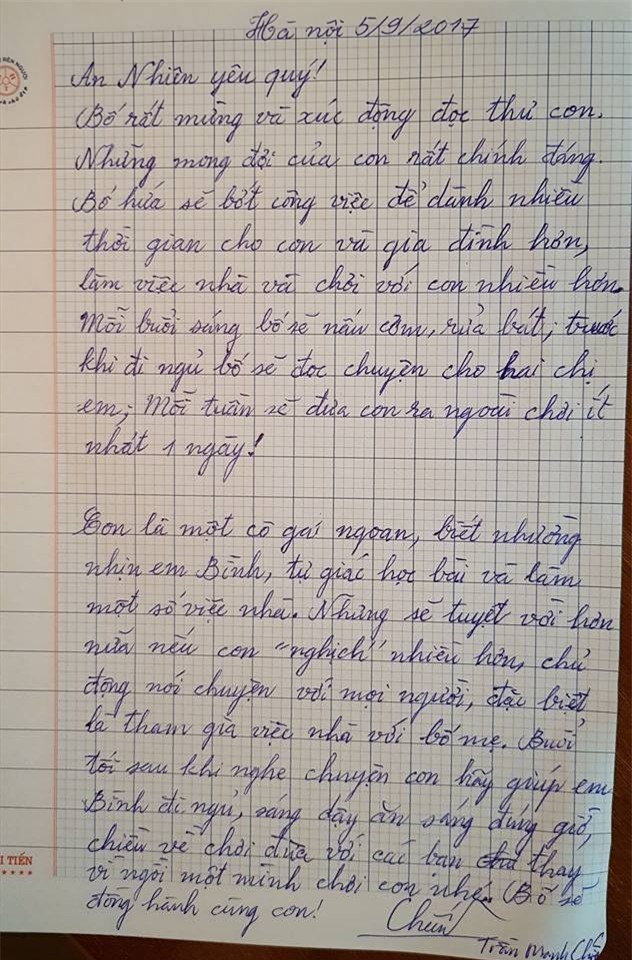 Hà nội 5/9/2017
An Nhiên yêu quý!
Bố rất mừng và xúc động đọc thư con.
Những mong đợi của con rất chính đáng.
Bố hứa sẽ bớt công việc để dành nhiều
thời gian cho con và gia đình hơn,
làm việc nhà và chơi với con nhiều hơn.
Mỗi buổi sáng bố sẽ nấu cơm, rửa bát, trước
khi đi ngủ bố sẽ đọc chuyện cho hai chị
em, Mỗi tuần sẽ đưa con ra ngoài chơi ít
nhất 1 ngày!
Con là một cô gái ngoan, biết nhường
nhịn em Bình, tự giác học bài và làm
một số việc nhà. Nhưng sẽ tuyệt vời hơn
nữa nếu con "nghịch" nhiều hơn, chủ
động nói chuyện với mọi người, đặc biệt
là tham gia việc nhà với bố mẹ. Buổi
tối sau khi nghe chuyện con hãy giúp em
Bình đi ngủ, sáng dậy ăn sáng đúng giờ,
chiều về chơi đùa với các bạn thay
vì ngồi một mình chơi con nhé. Bố sẽ
đồng hành cùng con!
Trần Mạnh
I TIẾN